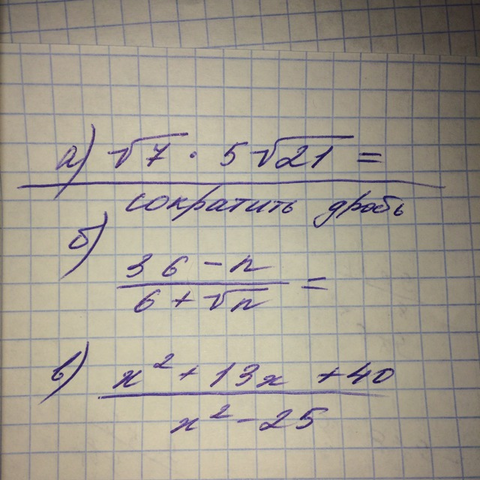 а) √7 · 5√21 =
сократить дробь
б) 36 - n / 6 + √n =
в) x² + 13x + 40 / x² - 25